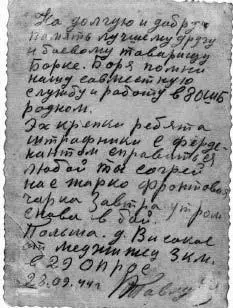 На долгую и добрую
память лучшему другу
и боевому товарищу
Борке. Боря помни
нашу совместную
службу и работу в 8 ОШБ
родном.
Эх крепки ребята
штрафники с
любой ты согрей
нас жарко фронтовая
чарка завтра утром
снова в бой
Польша. д. Високое
3 км.
с 29 ОПРОС
23.09.44г